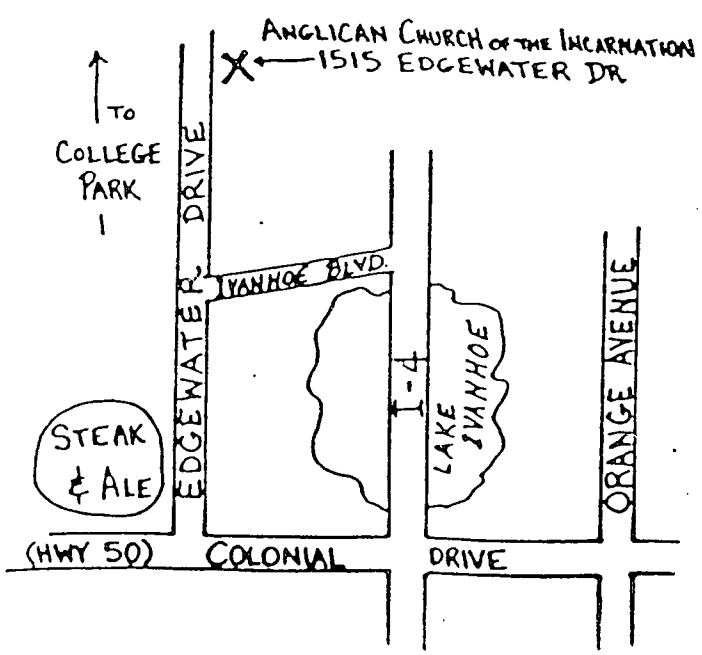 ANGLICAN CHURCH OF THE INCARNATION
1515 EDGEWATER DR
TO
COLLEGE
PARK
EDGEWATER DRIVE
IVANHOE BLVD.
I-4
LAKE
IVANHOE
ORANGE AVENUE
STEAK
& ALE
(HWY 50) COLONIAL DRIVE